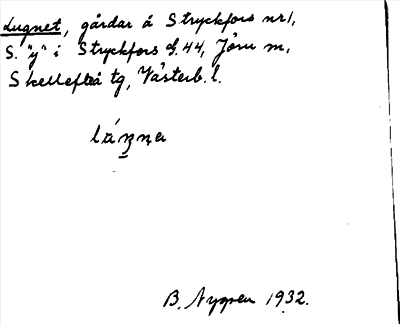 Lugnet, gårdar å Stryckfors nr 1,
S. "y" i Stryckfors s. 44, Jörn m,
Skellefteå tg, Västerb. l.
B. Nygren 1932.